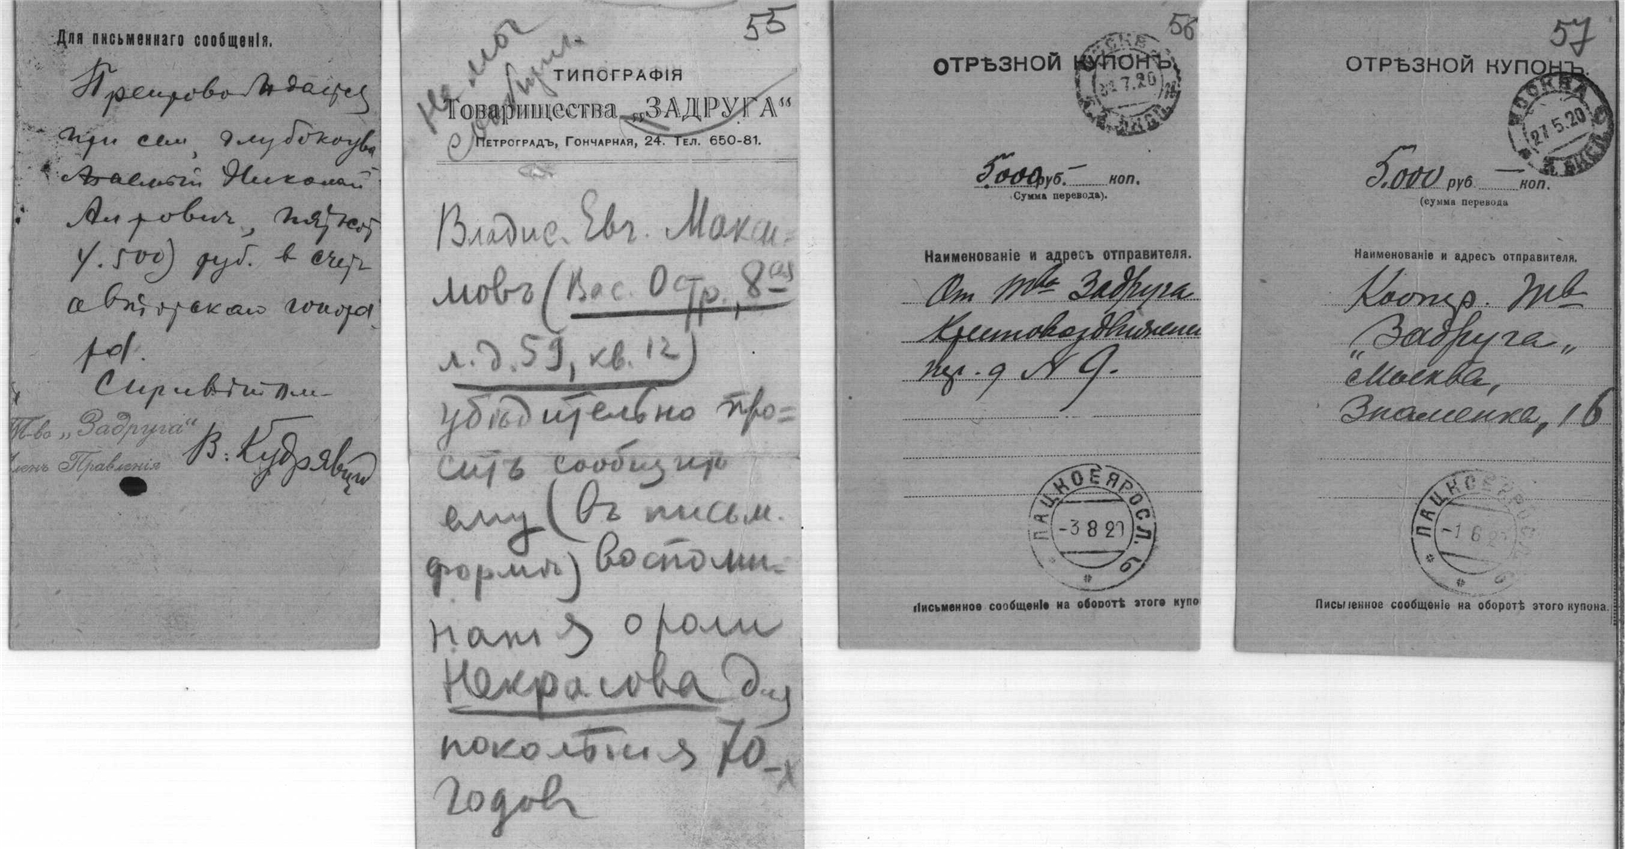 Для письменнаго сообщенія.
Препровождается
при сем, глубокоува
жаемый Николай
Алрович, пятьсот
(р. 500) руб. в счет
авторскаго гонора
ра.
С приветом
Т-во „Задруга“
Членъ Правленія
В. Кудрявцев
55
Не мог
сообщить.
ТИПОГРАФІЯ
Товарищества „ЗАДРУГА“
ПЕТРОГРАДЪ, ГОНЧАРНАЯ, 24. ТЕЛ. 650-81.
Владис. Евг. Макси=
мовъ (Вас. Остр., 8-ая
л. д. 59, кв. 12)
убѣдительно про=
ситъ сообщить
ему (въ письм.
формѣ) воспоми=
нанія о роли
Некрасова для
поколѣнія 70-х
годовъ
56
ОТРѢЗНОЙ КУПОНЪ.
МОСКВА
7.20
5.000 руб. — коп.
(Сумма перевода).
Наименованіе и адресъ отправителя.
От Тва Задруга
Крестовоздвижен
пер. д № 9.
ПАЦКОЕ ЯРОСЛ. Г.
-3 8 20
Письменное сообщеніе на оборотѣ этого купо
57
ОТРѢЗНОЙ КУПОНЪ.
МОСКВА
27.5.20
5.000 руб — коп.
(сумма перевода
Наименованіе и адресъ отправителя.
Коопер. Тво
„Задруга“
Москва,
Знаменка, 16
ПАЦКОЕ ЯРОСЛ. Г.
-1 6 20
Письменное сообщеніе на оборотѣ этого купона.